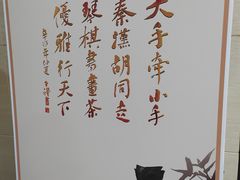 大手牵小手
秦漢胡同走
琴棋書畫茶
優雅行天下